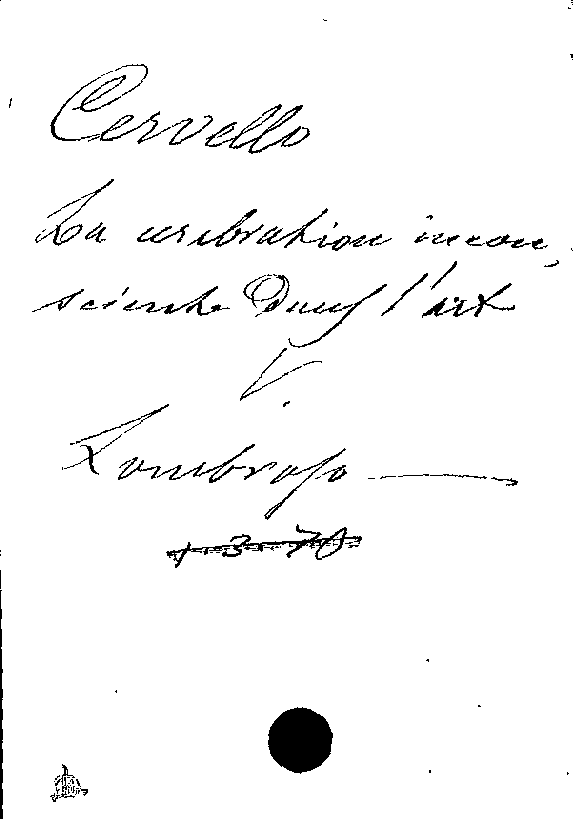 Cervello
La cerebration incon,
sciente dans l'art
V.
Lombroso